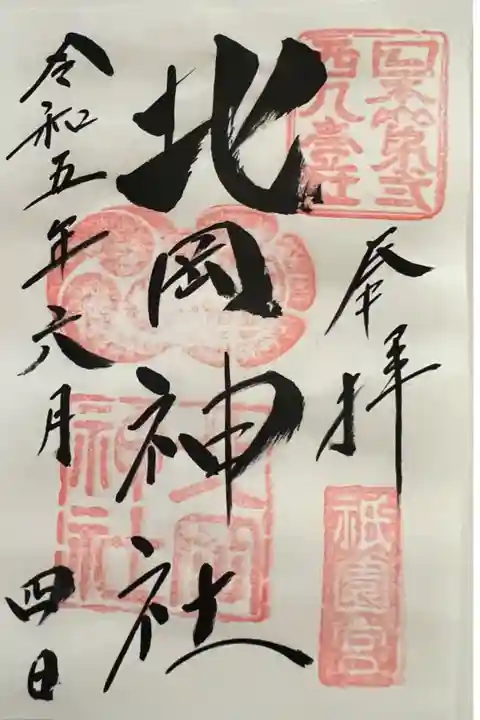 奉拝
祇園宮
北岡神社
北岡
神社
令和五年六月
四日